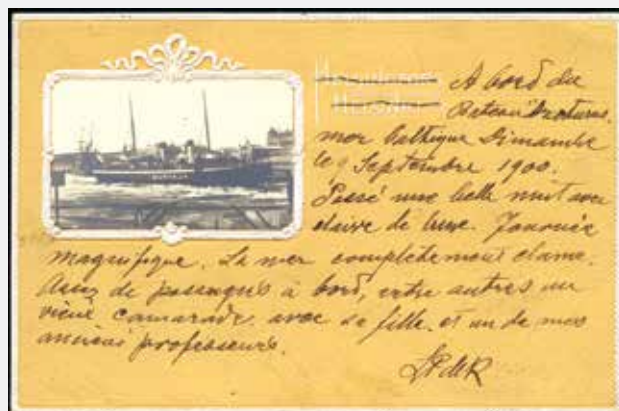 A bord du
Bateau
mer baltique Dimanche
le 9 Septembre 1900.
Passé une belle nuit avec
claire de lune. Journée
magnifique. La mer complètement clame.
Assez de passagers à bord, entre autres un
vieux camarade avec sa fille et un de mes
anciens professeurs.